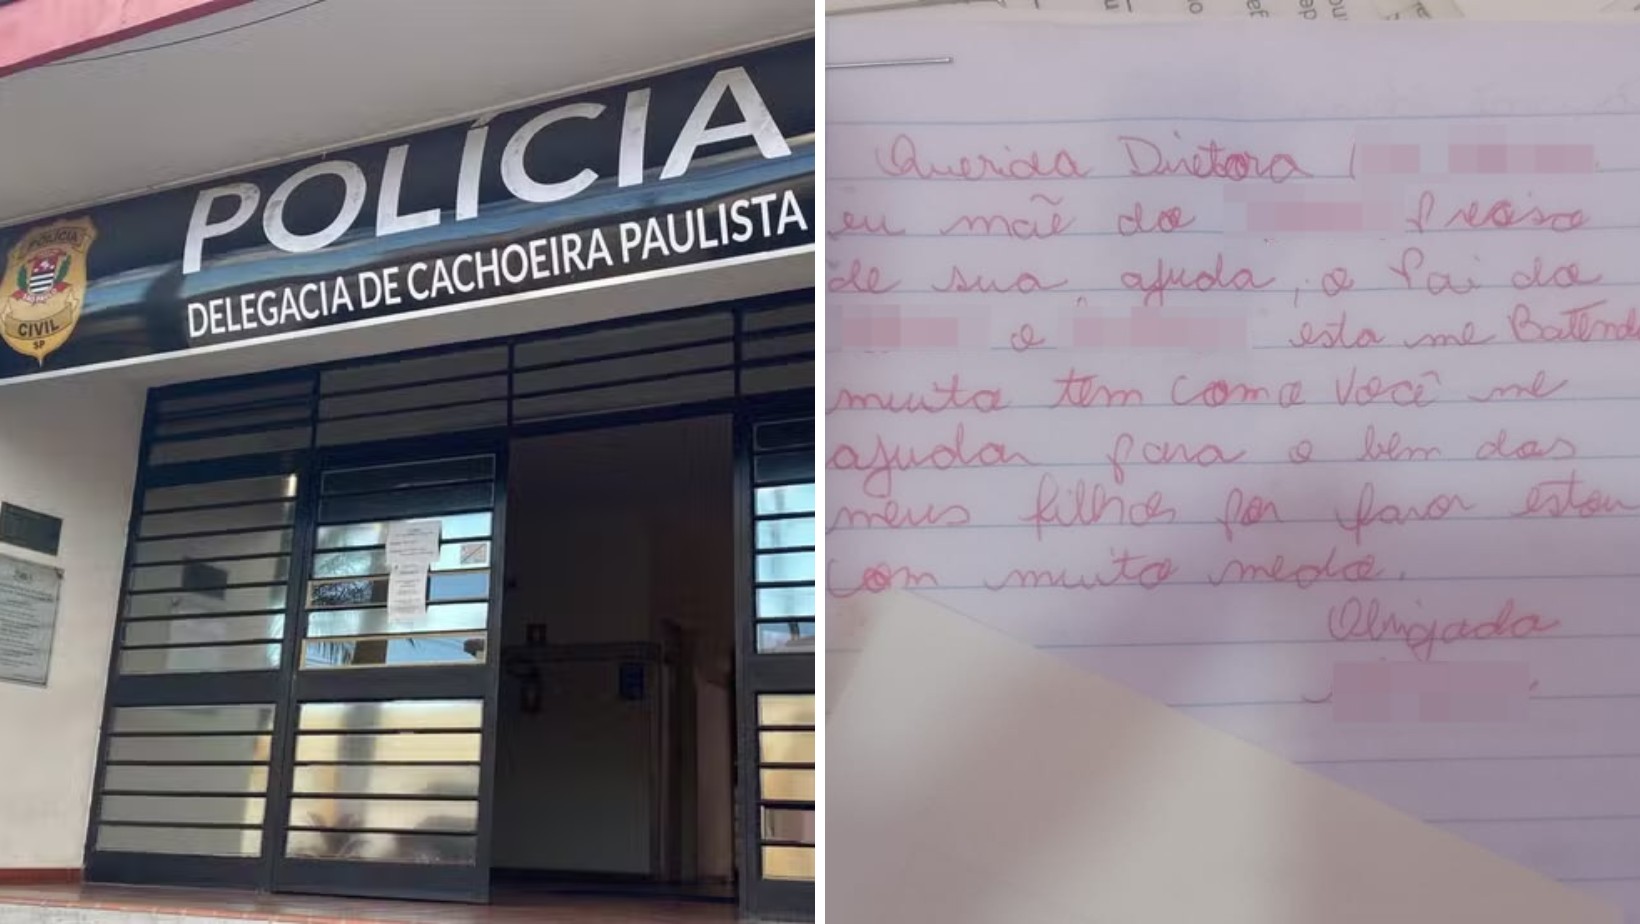 POLÍCIA
DELEGACIA DE CACHOEIRA PAULISTA
POLÍCIA
SÃO PAULO
CIVIL
SP
Querida Diretora
eu mãe do preciso
de sua ajuda, o Pai do
e esta me Batend
muito tem como você me
ajudar para o bem dos
meus filhos por favor estou
com muito medo.
Obrigada